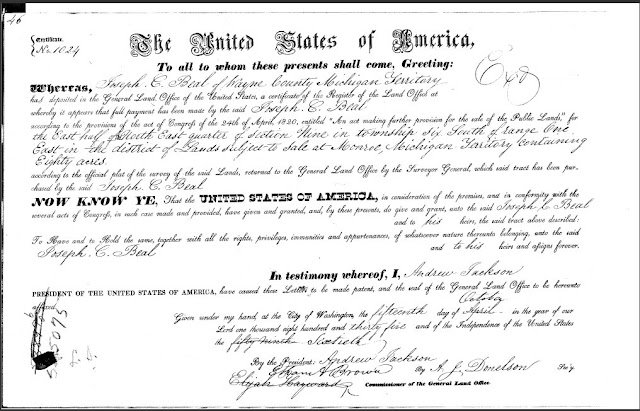 46
Certificate
No. 1024
The United States of America,
To all to whom these presents shall come, Greeting:
Whereas, Joseph C. Beal of Wayne County Michigan Territory
has deposited in the General Land Office of the United States, a certificate of the Register of the Land Office at
whereby it appears that full payment has been made by the said Joseph C. Beal
according to the provisions of the act of Congress of the 24th of April, 1820, entitled "An act making further provision for the sale of the Public Lands," for
the East half of the North East quarter of Section Nine in township Six South of range One
East in the district of Lands subject to Sale at Monroe, Michigan Territory containing
Eighty acres.
according to the official plat of the survey of the said Lands, returned to the General Land Office by the Surveyor General, which said tract has been pur-
chased by the said Joseph C. Beal
NOW KNOW YE, That the UNITED STATES OF AMERICA, in consideration of the premises, and in conformity with the
several acts of Congress, in such case made and provided, have given and granted, and, by these presents, do give and grant, unto the said Joseph C. Beal
and to his heirs, the said tract above described:
To Have and to Hold the same, together with all the rights, privileges, immunities and appurtenances, of whatsoever nature thereunto belonging, unto the said
Joseph C. Beal and to his heirs and assigns forever.
In testimony whereof, I, Andrew Jackson
PRESIDENT OF THE UNITED STATES OF AMERICA, have caused these Letters to be made patent, and the seal of the General Land Office to be hereunto
affixed.
October
Given under my hand, at the City of Washington, the fifteenth day of April in the year of our
Lord one thousand eight hundred and thirty five and of the Independence of the United States
the fifty ninth Sixtieth
By the President: Andrew Jackson
By A. J. Donelson Sec'y
Ethan A. Brown
Elijah Hayward Commissioner of the General Land Office.